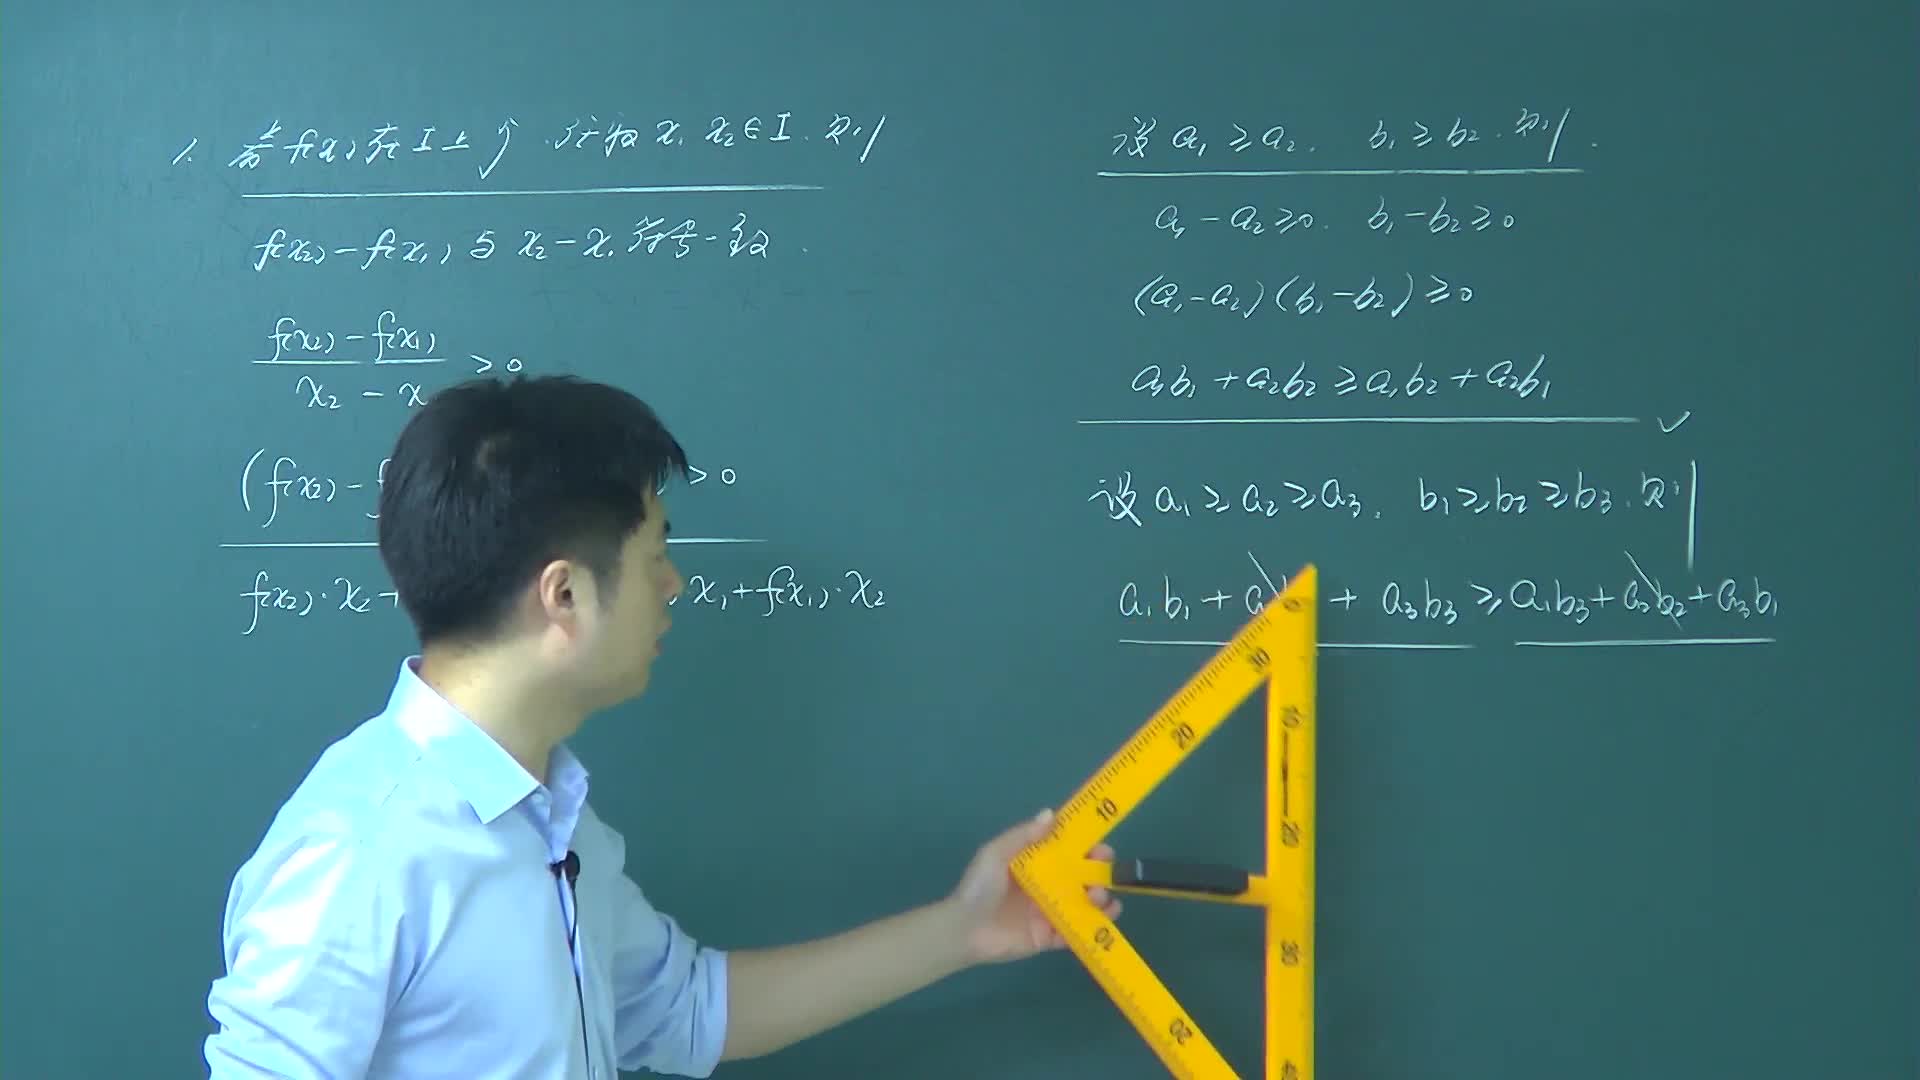 1. 若f(x)在I上↗.任取x₁ x₂∈I.则
f(x₂)-f(x₁)与x₂-x₁符号一致.
f(x₂)-f(x₁)
x₂-x >0
(f(x₂)- >0
f(x₂)·x₂+ ·x₁+f(x₁)·x₂
设a₁≥a₂. b₁≥b₂.则.
a₁-a₂≥0. b₁-b₂≥0
(a₁-a₂)(b₁-b₂)≥0
a₁b₁+a₂b₂≥a₁b₂+a₂b₁
✓
设a₁≥a₂≥a₃. b₁≥b₂≥b₃.则
a₁b₁+ + a₃b₃≥a₁b₃+a₂b₂+a₃b₁
0
10
20
30
10
20
30
40
10
20